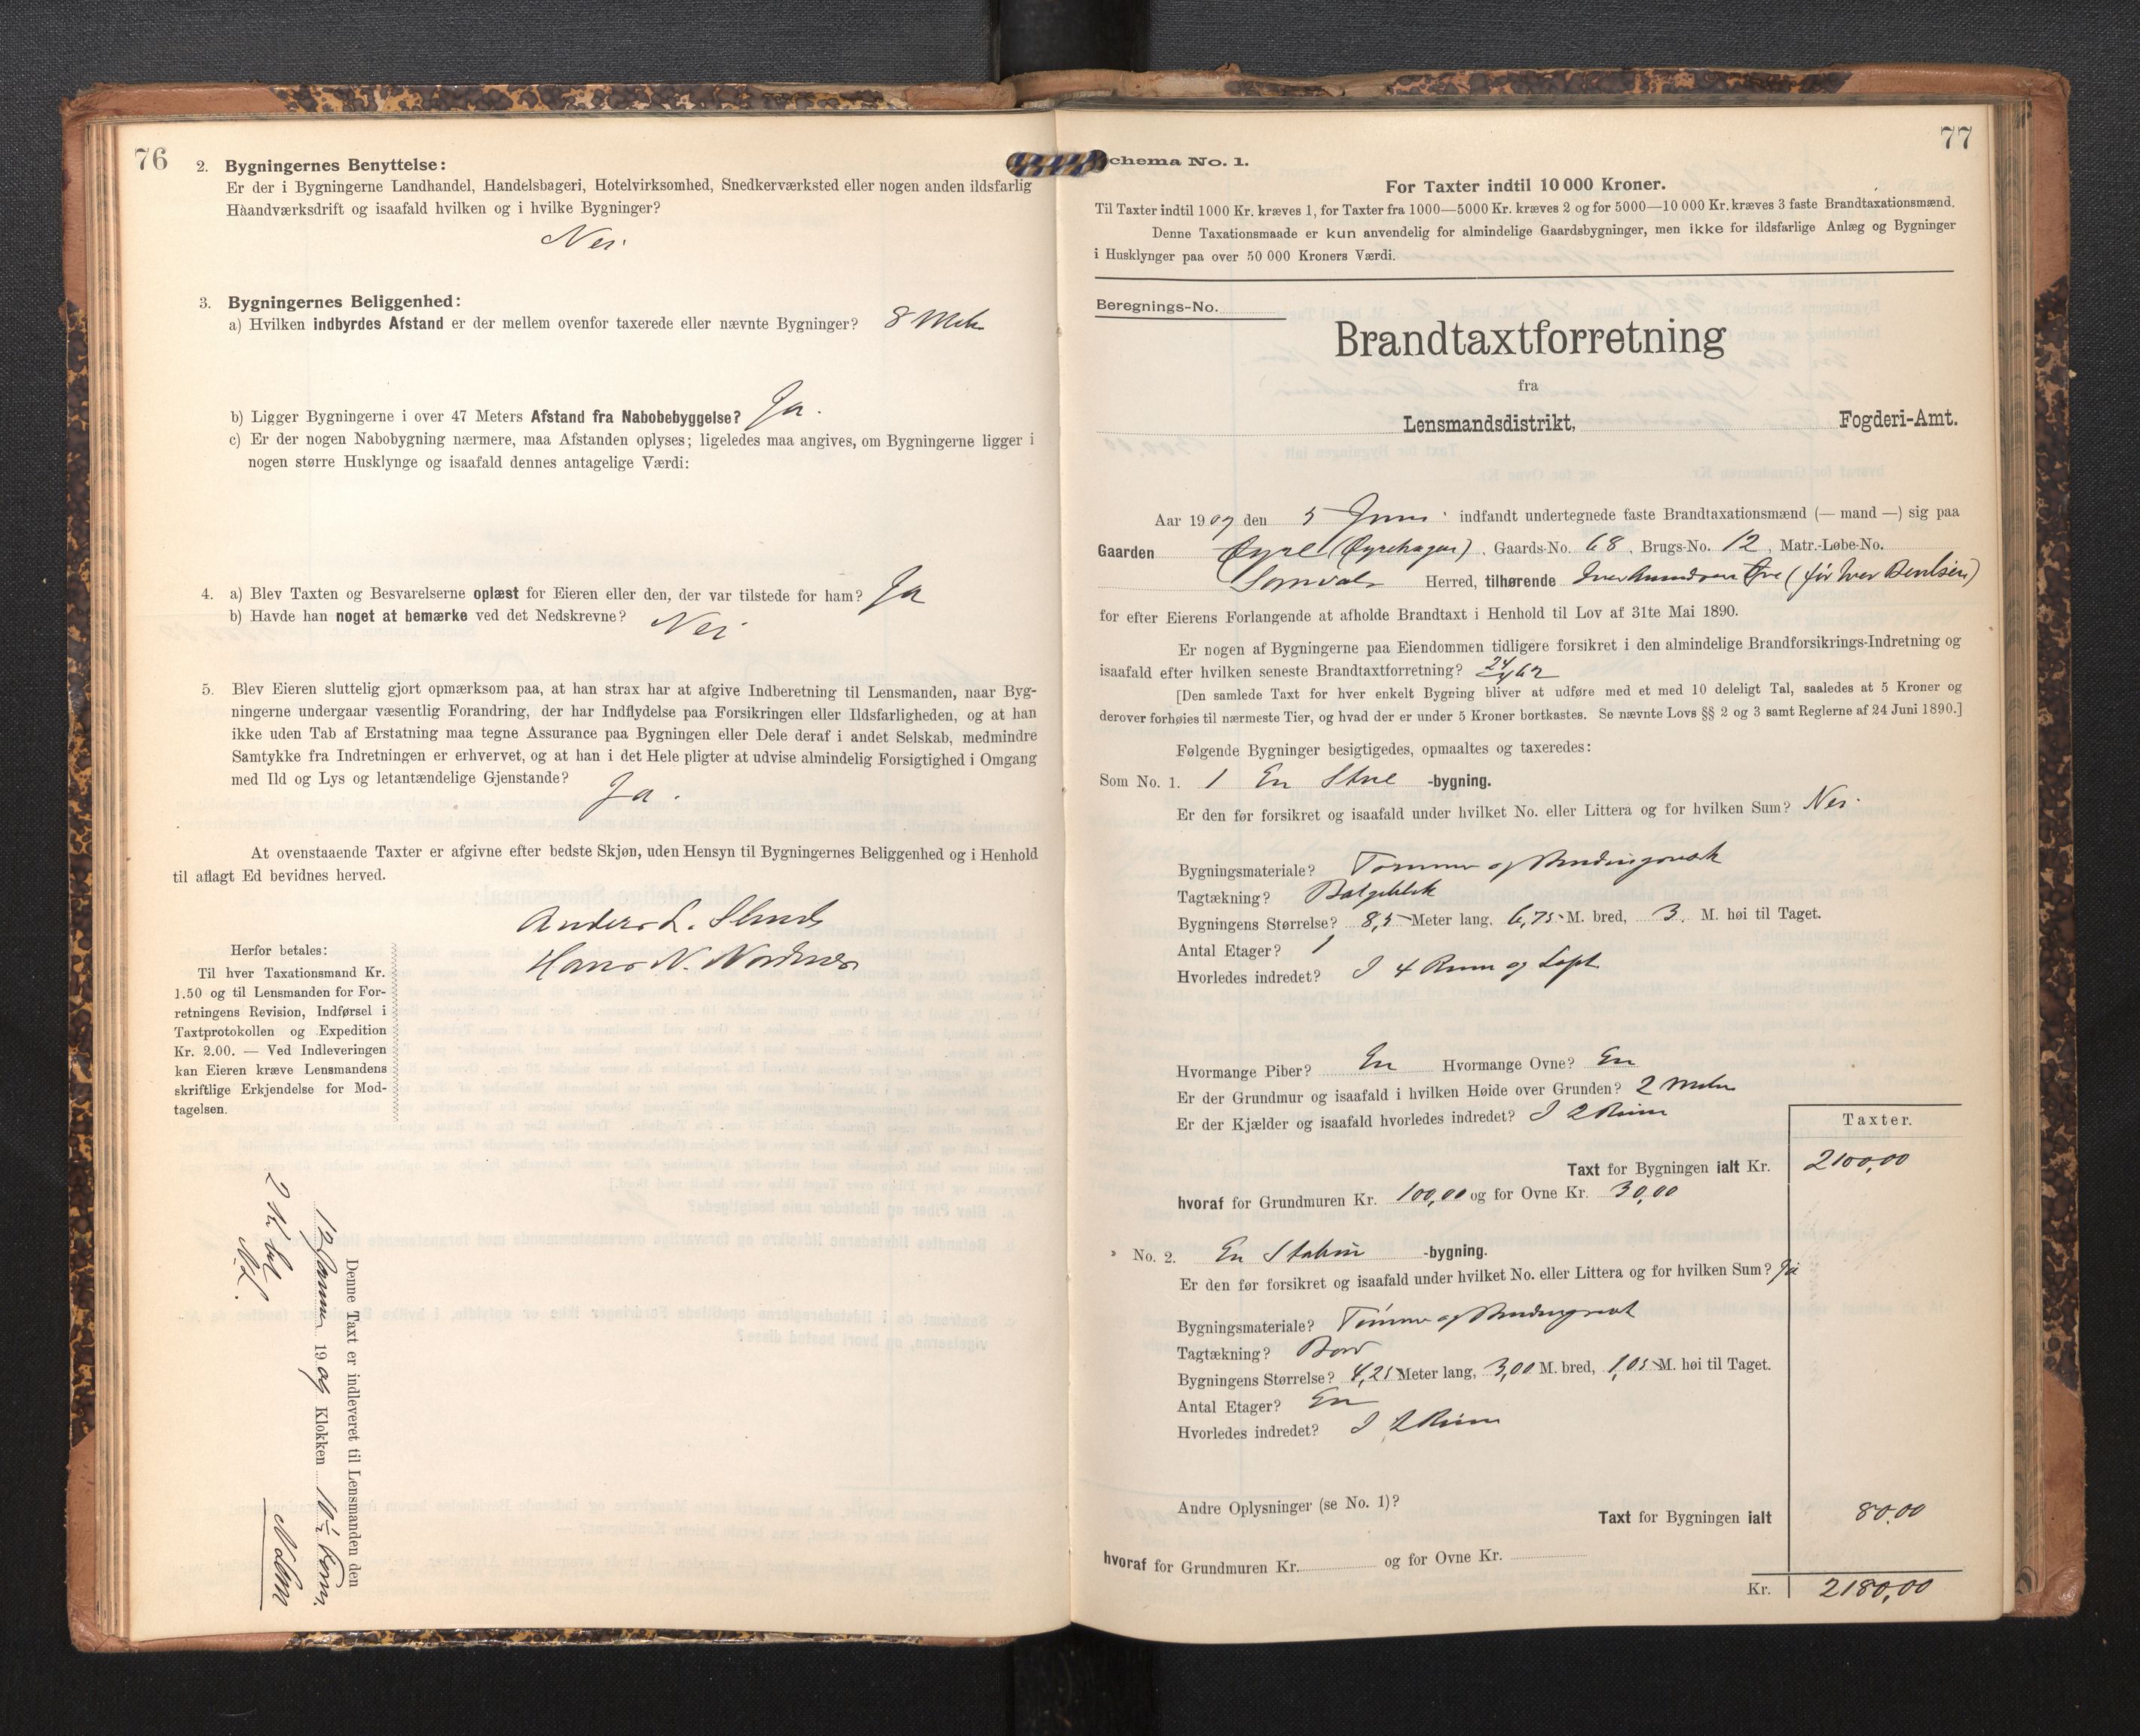 76
2. Bygningernes Benyttelse:
Er der i Bygningerne Landhandel, Handelsbageri, Hotelvirksomhed, Snedkerværksted eller nogen anden ildsfarlig
Haandværksdrift og isaafald hvilken og i hvilke Bygninger?
Nei.
3. Bygningernes Beliggenhed:
a) Hvilken indbyrdes Afstand er der mellem ovenfor taxerede eller nævnte Bygninger? 8 Meter
b) Ligger Bygningerne i over 47 Meters Afstand fra Nabobebyggelse? Ja.
c) Er der nogen Nabobygning nærmere, maa Afstanden oplyses; ligeledes maa angives, om Bygningerne ligger i
nogen større Husklynge og isaafald dennes antagelige Værdi:
4. a) Blev Taxten og Besvarelserne oplæst for Eieren eller den, der var tilstede for ham? Ja
b) Havde han noget at bemærke ved det Nedskrevne? Nei
5. Blev Eieren sluttelig gjort opmærksom paa, at han strax har at afgive Indberetning til Lensmanden, naar Byg-
ningerne undergaar væsentlig Forandring, der har Indflydelse paa Forsikringen eller Ildsfarligheden, og at han
ikke uden Tab af Erstatning maa tegne Assurance paa Bygningen eller Dele deraf i andet Selskab, medmindre
Samtykke fra Indretningen er erhvervet, og at han i det Hele pligter at udvise almindelig Forsigtighed i Omgang
med Ild og Lys og letantændelige Gjenstande?
Ja.
At ovenstaaende Taxter er afgivne efter bedste Skjøn, uden Hensyn til Bygningernes Beliggenhed og i Henhold
til aflagt Ed bevidnes herved.
Anders L.
Hans N.
Herfor betales:
Til hver Taxationsmand Kr.
1.50 og til Lensmanden for For-
retningens Revision, Indførsel i
Taxtprotokollen og Expedition
Kr. 2.00. — Ved Indleveringen
kan Eieren kræve Lensmandens
skriftlige Erkjendelse for Mod-
tagelsen.
Denne Taxt er indleveret til Lensmanden den
12 Januar 1909 Klokken 10½ Form.
2 Kr. bet.
77
Schema No. 1.
For Taxter indtil 10 000 Kroner.
Til Taxter indtil 1000 Kr. kræves 1, for Taxter fra 1000—5000 Kr. kræves 2 og for 5000—10 000 Kr. kræves 3 faste Brandtaxationsmænd.
Denne Taxationsmaade er kun anvendelig for almindelige Gaardsbygninger, men ikke for ildsfarlige Anlæg og Bygninger
i Husklynger paa over 50 000 Kroners Værdi.
Beregnings-No.
Brandtaxtforretning
fra
Lensmandsdistrikt, Fogderi-Amt.
Aar 1907 den 5 Juni indfandt undertegnede faste Brandtaxationsmænd (— mand —) sig paa
Gaarden Øyre (Øyrehagen), Gaards-No. 68, Brugs-No. 12, Matr.-Løbe-No.
Herred, tilhørende Iver Øire (før Iver Bentsen)
for efter Eierens Forlangende at afholde Brandtaxt i Henhold til Lov af 31te Mai 1890.
Er nogen af Bygningerne paa Eiendommen tidligere forsikret i den almindelige Brandforsikrings-Indretning og
isaafald efter hvilken seneste Brandtaxtforretning?
[Den samlede Taxt for hver enkelt Bygning bliver at udføre med et med 10 deleligt Tal, saaledes at 5 Kroner og
derover forhøies til nærmeste Tier, og hvad der er under 5 Kroner bortkastes. Se nævnte Lovs §§ 2 og 3 samt Reglerne af 24 Juni 1890.]
Følgende Bygninger besigtigedes, opmaaltes og taxeredes:
Som No. 1. 1 En Stue -bygning.
Er den før forsikret og isaafald under hvilket No. eller Littera og for hvilken Sum? Nei.
Bygningsmateriale? Tømmer og Bindingsverk
Tagtækning? Bølgeblik
Bygningens Størrelse? 8,5 Meter lang, 6,75 M. bred, 3 M. høi til Taget.
Antal Etager? 1
Hvorledes indredet? I 4 Rum og Loft
Hvormange Piber? En Hvormange Ovne? En
Er der Grundmur og isaafald i hvilken Høide over Grunden? 2 Meter
Er der Kjælder og isaafald hvorledes indredet? I 2 Rum
Taxter.
Taxt for Bygningen ialt Kr. 2100,00
hvoraf for Grundmuren Kr. 100,00 og for Ovne Kr. 30,00
" No. 2. En Stabur -bygning.
Er den før forsikret og isaafald under hvilket No. eller Littera og for hvilken Sum? Ja
Bygningsmateriale? Tømmer og Bindingsverk
Tagtækning? Bord
Bygningens Størrelse? 4,25 Meter lang, 3,00 M. bred, 1,05 M. høi til Taget.
Antal Etager? En
Hvorledes indredet? I 2 Rum
Andre Oplysninger (se No. 1)?
Taxt for Bygningen ialt 80.00
hvoraf for Grundmuren Kr. og for Ovne Kr.
Kr. 2180,00